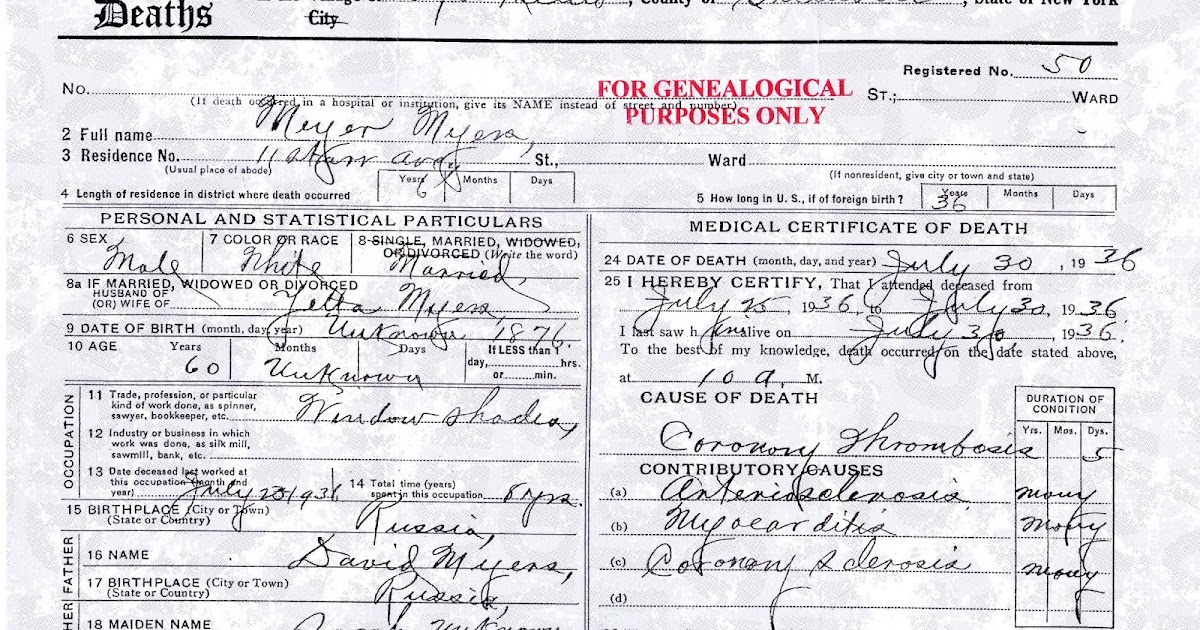 Deaths City , County of , State of New York
Registered No. 50
No. FOR GENEALOGICAL PURPOSES ONLY ST.; WARD
(If death occurred in a hospital or institution, give its NAME instead of street and number)
2 Full name Meyer Myers,
3 Residence No. 11 Starr Ave., St., Ward
(Usual place of abode) (If nonresident, give city or town and state)
4 Length of residence in district where death occurred Years Months Days
5 How long in U. S., if of foreign birth? Years 36 Months Days
PERSONAL AND STATISTICAL PARTICULARS
6 SEX, Male 7 COLOR OR RACE White 8 SINGLE, MARRIED, WIDOWED, OR DIVORCED (Write the word) Married,
8a IF MARRIED, WIDOWED OR DIVORCED
HUSBAND OF (OR) WIFE OF Yetta Myers,
9 DATE OF BIRTH (month, day, year) Unknown, 1876.
10 AGE Years 60 Months Unknown Days If LESS than 1 day, hrs. or min.
OCCUPATION
11 Trade, profession, or particular kind of work done, as spinner, sawyer, bookkeeper, etc. Window shades,
12 Industry or business in which work was done, as silk mill, sawmill, bank, etc.
13 Date deceased last worked at this occupation (month and year) July
14 Total time (years) spent in this occupation yrs.
15 BIRTHPLACE (City or Town) (State or Country) Russia,
FATHER
16 NAME David Myers,
17 BIRTHPLACE (City or Town) (State or Country) Russia,
18 MAIDEN NAME Unknown
MEDICAL CERTIFICATE OF DEATH
24 DATE OF DEATH (month, day, and year) July 30, 1936
25 I HEREBY CERTIFY, That I attended deceased from
July 25, 1936, to July 30, 1936.
I last saw h im alive on July 30, 1936.
To the best of my knowledge, death occurred on the date stated above,
at 10 a. M.
CAUSE OF DEATH
DURATION OF CONDITION
Yrs. Mos. Dys.
Coronary Thrombosis 5
CONTRIBUTORY CAUSES
(a) Arteriosclerosis many
(b) Myocarditis many
(c) Coronary Sclerosis many
(d)